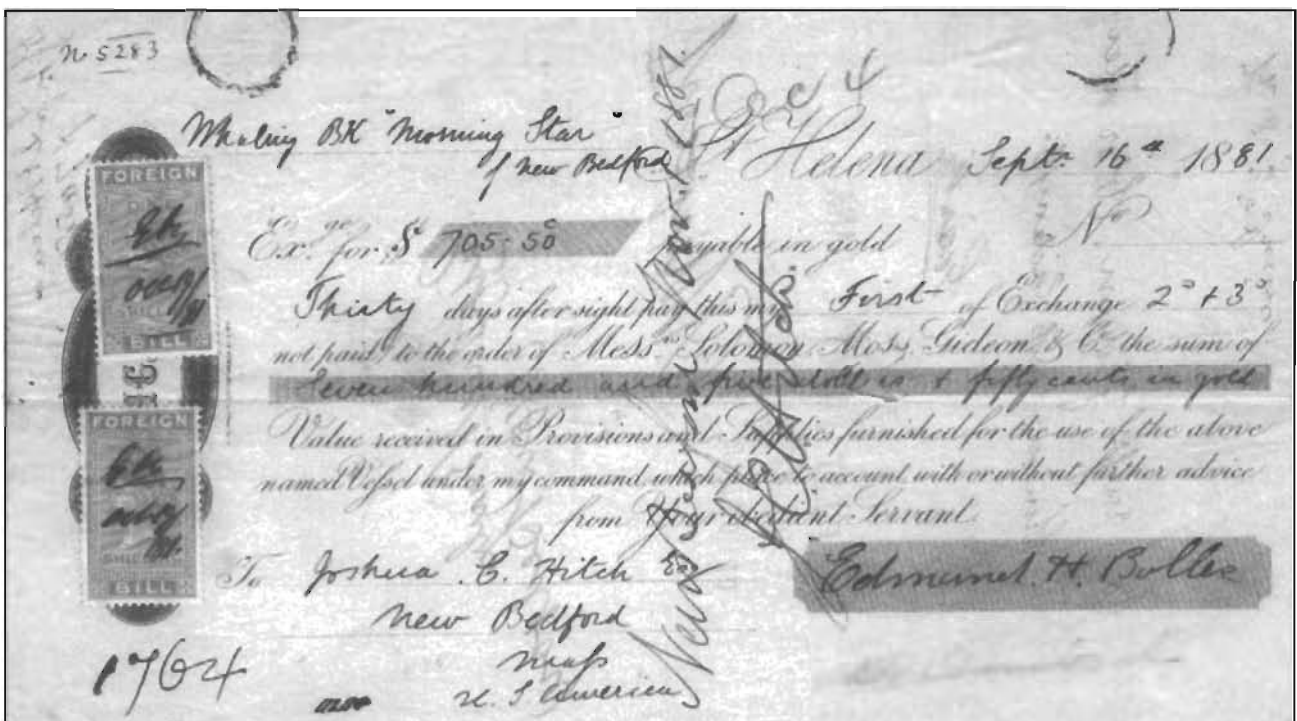 No 5283
Whaling BK "Morning Star"
of New Bedford
St Helena Sept. 16th 1881
Exge for $ 705-50c payable in gold No
Thirty days after sight pay this my First of Exchange 2d + 3d
not paid, to the order of Messrs Solomon Moss, Gideon, & Co. the sum of
Seven hundred and five dollars + fifty cents in gold
Value received in Provisions and Supplies furnished for the use of the above
named Vessel under my command which place to account with or without further advice
from Your obedient Servant
Edmund. H. Bolles
To Joshua C. Hitch Esq
New Bedford
Mass
U.S America
1764
FOREIGN
SHILLING
BILL
FOREIGN
SHILLING
BILL
New Bedford Nov. 1 1881.